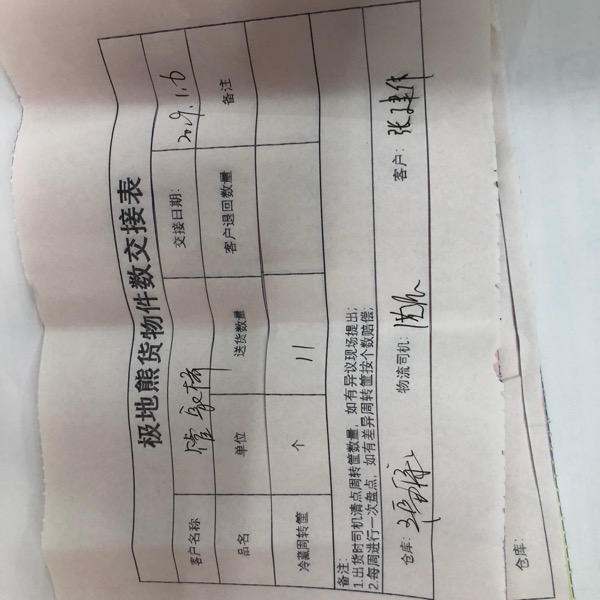 极地熊货物件数交接表
客户名称 交接日期: 2019.1.6
品名 单位 送货数量 客户退回数量 备注
冷藏周转筐 个 11
备注:
1.出货时司机清点周转筐数量,如有异议现场提出;
2.每周进行一次盘点,如有差异周转筐按个数赔偿;
仓库: 物流司机: 客户: 张建伟
仓库: